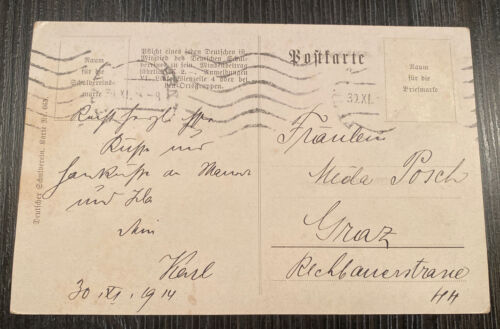 Raum
für die
Schulvereins-
marke
Pflicht eines jeden Deutschen ist
Mitglied des Deutschen Schulvereins
zu sein. Mindestbeitrag
jährlich K 2.–. Anmeldungen
oder bei
den Ortsgruppen.
Postkarte
Raum
für die
Briefmarke
30.XI.
Deutscher Schulverein. Karte Nr.
Küsse und
Handküsse an Mama
und Ila
Dein
Karl
30 XI. 1914
Fräulein
Meda Posch
Graz
Rechbauerstrasse
44